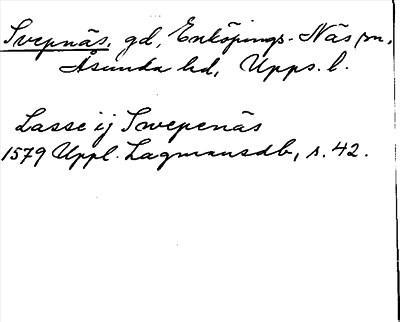 Svepnäs, gd, Enköpings-Näs sn,
Åsunda hd, Upps. l.
Lasse ij Swepenäs
1579 Uppl. Lagmansdb, s. 42.